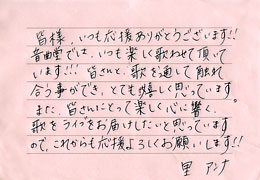 皆様、いつも応援ありがとうございます!!
音曲雷では、いつも楽しく歌わせて頂いて
います!!! 皆さんと、歌を通して触れ
合う事ができ、とても嬉しく思っています。
また、皆さんにとって楽しく心に響く、
歌をライブをお届けしたいと思っています
ので、これからも応援よろしくお願いします!!
里 アンナ